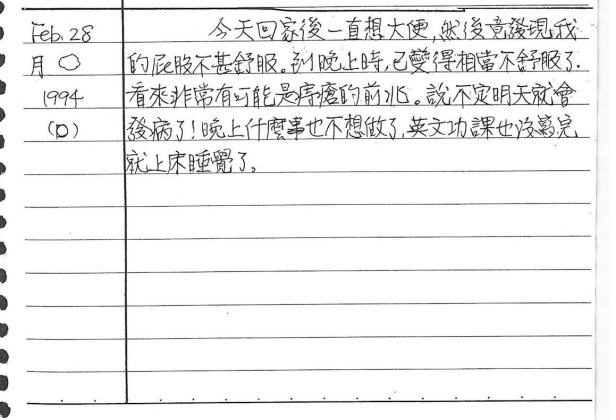 Feb. 28 今天回家後一直想大便,然後竟發現我
月 〇 的屁股不甚舒服。到晚上時,已變得相當不舒服了.
1994 看來非常有可能是痔瘡的前兆。說不定明天就會
(D) 發病了!晚上什麼事也不想做了,英文功課也沒寫完
就上床睡覺了。